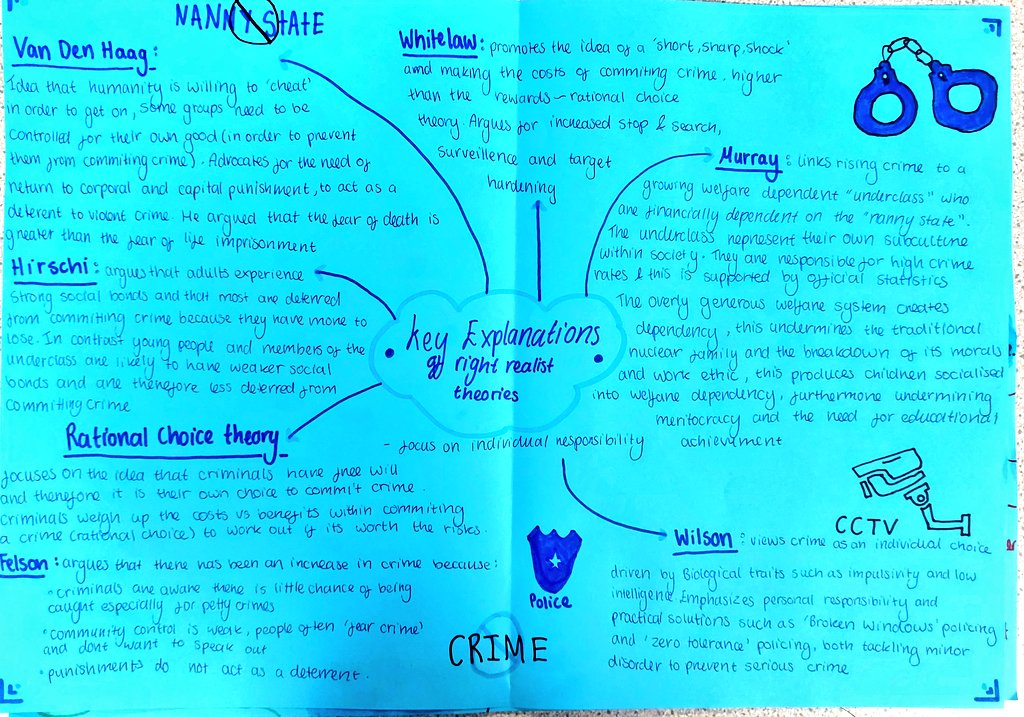 NANNY STATE
Van Den Haag:
Idea that humanity is willing to 'cheat'
in order to get on, some groups need to be
controlled for their own good (in order to prevent
them from commiting crime). Advocates for the need of
return to corporal and capital punishment, to act as a
deterent to violent crime. He argued that the fear of death is
greater than the fear of life imprisonment
Hirschi: argues that adults experience
strong social bonds and that most are deferred
from committing crime because they have more to
lose. In contrast young people and members of the
underclass are likely to have weaker social
bonds and are therefore less deferred from
commiting crime
Rational Choice theory
focuses on the idea that criminals have free will
and therefore it is their own choice to commit crime.
criminals weigh up the costs vs benefits within commiting
a crime (rational choice) to work out if its worth the risks.
Felson: argues that there has been an increase in crime because:
• criminals are aware there is little chance of being
caught especially for petty crimes
• community control is weak, people often 'fear crime'
and dont want to speak out
• punishments do not act as a deterrent.
Whitelaw: promotes the idea of a 'short, sharp, shock'
and making the costs of commiting crime, higher
than the rewards - rational choice
theory. Argues for increased stop & search,
surveillence and target
hardening
Key Explanations
of right realist
theories
- focus on individual responsibility
Murray: links rising crime to a
growing welfare dependent "underclass" who
are financially dependent on the "nanny state".
The underclass represent their own subculture
within society. They are responsible for high crime
rates & this is supported by official statistics
The overly generous welfare system creates
dependency, this undermines the traditional
nuclear family and the breakdown of its morals
and work ethic, this produces children socialised
into welfare dependency, furthermore undermining
meritocracy and the need for educational
achievement
CCTV
Wilson: views crime as an individual choice
driven by Biological traits such as impulsivity and low
intelligence. Emphasizes personal responsibility and
practical solutions such as 'Broken Windows' policing
and 'zero tolerance' policing, both tackling minor
disorder to prevent serious crime
Police
CRIME